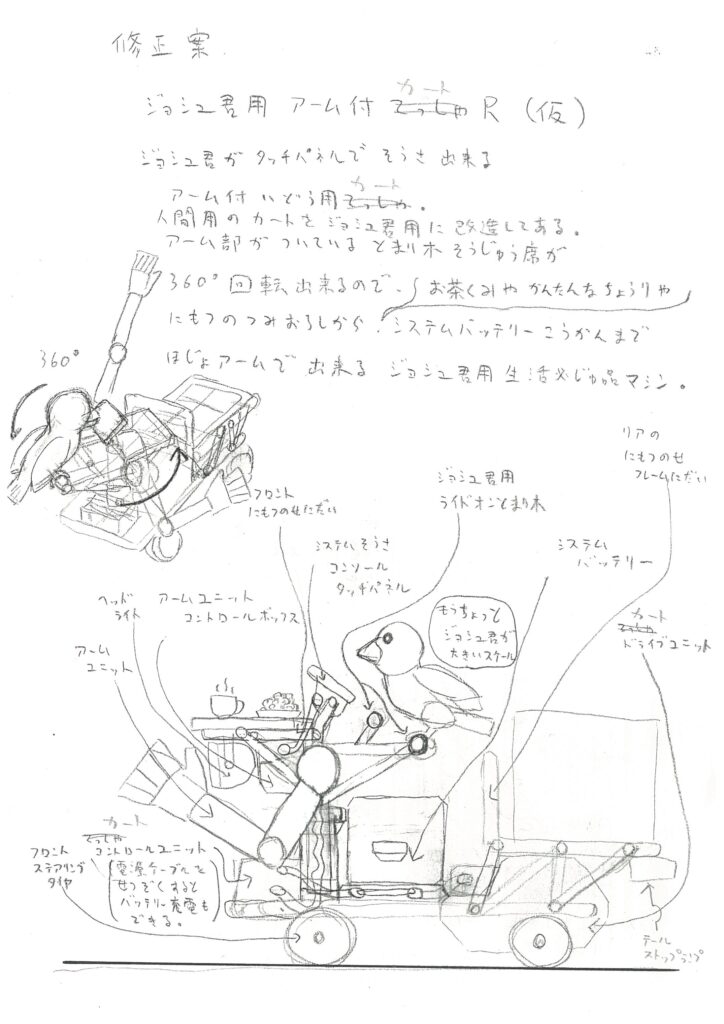 修正案
カート
ジョシュ君用 アーム付 てっしゃ R (仮)
ジョシュ君が タッチパネルで そうさ 出来る
カート
アーム付 いどう用 てっしゃ。
人間用の カートを ジョシュ君用に 改造してある。
アーム部が ついている とまり木 そうじゅう席が
360° 回転 出来るので、お茶くみや かんたんな ちょうりや
にもつの つみおろしから、システムバッテリー こうかんまで
ほじょアームで 出来る ジョシュ君用 生活必じゅ品マシン。
360°
リアの
にもつのせ
フレームにだい
フロント
にもつのせにだい
ジョシュ君用
ライドオンとまり木
システムそうさ
コンソール
タッチパネル
システム
バッテリー
ヘッド
ライト
アームユニット
コントロールボックス
アーム
ユニット
もうちょっと
ジョシュ君が
大きいスケール
カート
てっしゃ
ドライブユニット
カート
てっしゃ
コントロールユニット
(電源ケーブルを
せつぞくすると
バッテリー充電も
できる。)
フロント
ステアリング
タイヤ
テール
ストップランプ